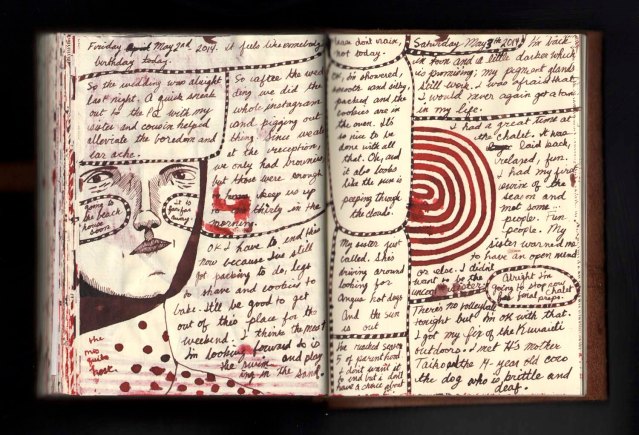 Friday May 2nd, 2014. it feels like somebody's
birthday today.
So the wedding was alright
last night. A quick sneak
out to the PQ with my
sister and cousin helped
alleviate the boredom and
ear ache.
going to
the beach
house
soon
it is
too far
away
So after the wed
ding we did the
whole instagram
and pigging out
thing. Since we ate
at the reception,
we only had brownies
but those were enough
to keep us up
to thirty in the
morning.
OK I have to end this
now because I've still
got packing to do, legs
to shave and cookies to
bake. It'll be good to get
out of this place for the
weekend. I think the most
I'm looking forward to is
the swim and play
ing in the sand.
the
host.
please don't rain,
not today.
OK, so showered,
smooth and silky,
packed and the
cookies are in
the oven. It's
so nice to be
done with all
that. Oh, and
it also looks
like the sun is
peeping through
the clouds.
My sister just
called. She's
driving around
looking for
Angus hot dogs
And the sun
is out
of parenthood.
I don't want it
to end but I don't
have a choice about
Saturday May 3rd 2014 I'm back
in town and a little darker which
is promising; my pigment glands
still work. I was afraid that
I would never again get a tan
in my life.
I had a great time at
the chalet. It was
laid back,
relaxed, fun.
I had my first
swim of the
season and
met some
people. Fun
people. My
sister warned me
to have an open mind
or else. I didn't
want to be the
Alright I'm
going to stop now
for final chalet
preps.
There's no volleyball
tonight but I'm OK with that.
I got my fix of the Kuwaiti
outdoors. I met H's mother
Taiko, the 14-year old coco
the dog who is brittle and
deaf.